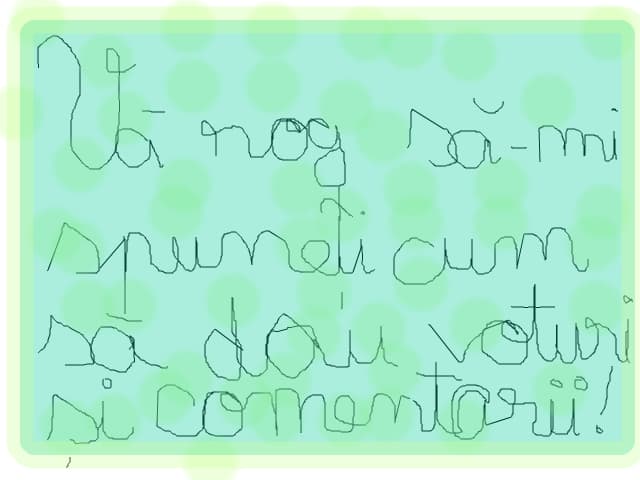 Vă rog să-mi
spuneți cum
să dau voturi
și comentarii!